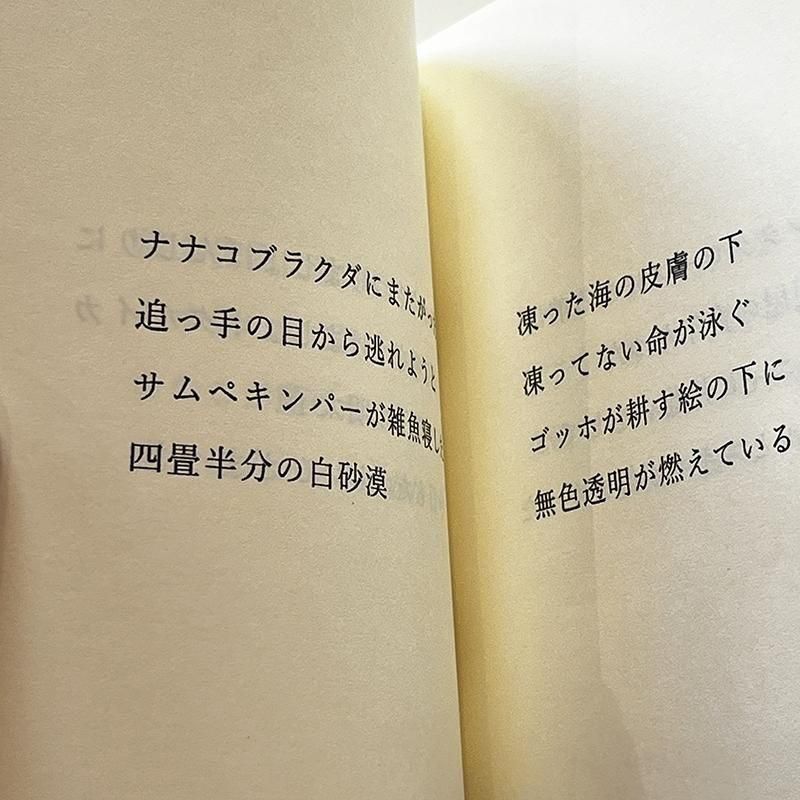 ナナコブラクダにまたがっ
追っ手の目から逃れようと
サムペキンパーが雑魚寝し
四畳半分の白砂漠
凍った海の皮膚の下
凍ってない命が泳ぐ
ゴッホが耕す絵の下に
無色透明が燃えている